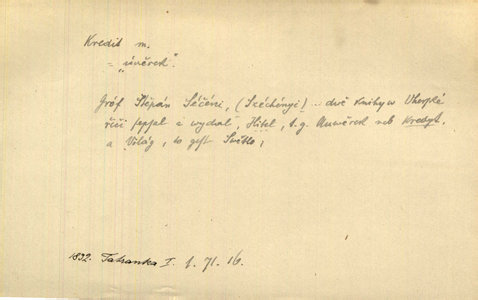 Kredit m.
= „úvěrek“.
Gróf Štěpán Séčéni, (Széchényi) .. dvě knihy w Uherské
řiči sepsal a wydal, Hitel, t. g. Auwěrek neb Kredyt,
a Világ, to gest Swětlo,
1832. Tatranka I. 1. 71. 16.